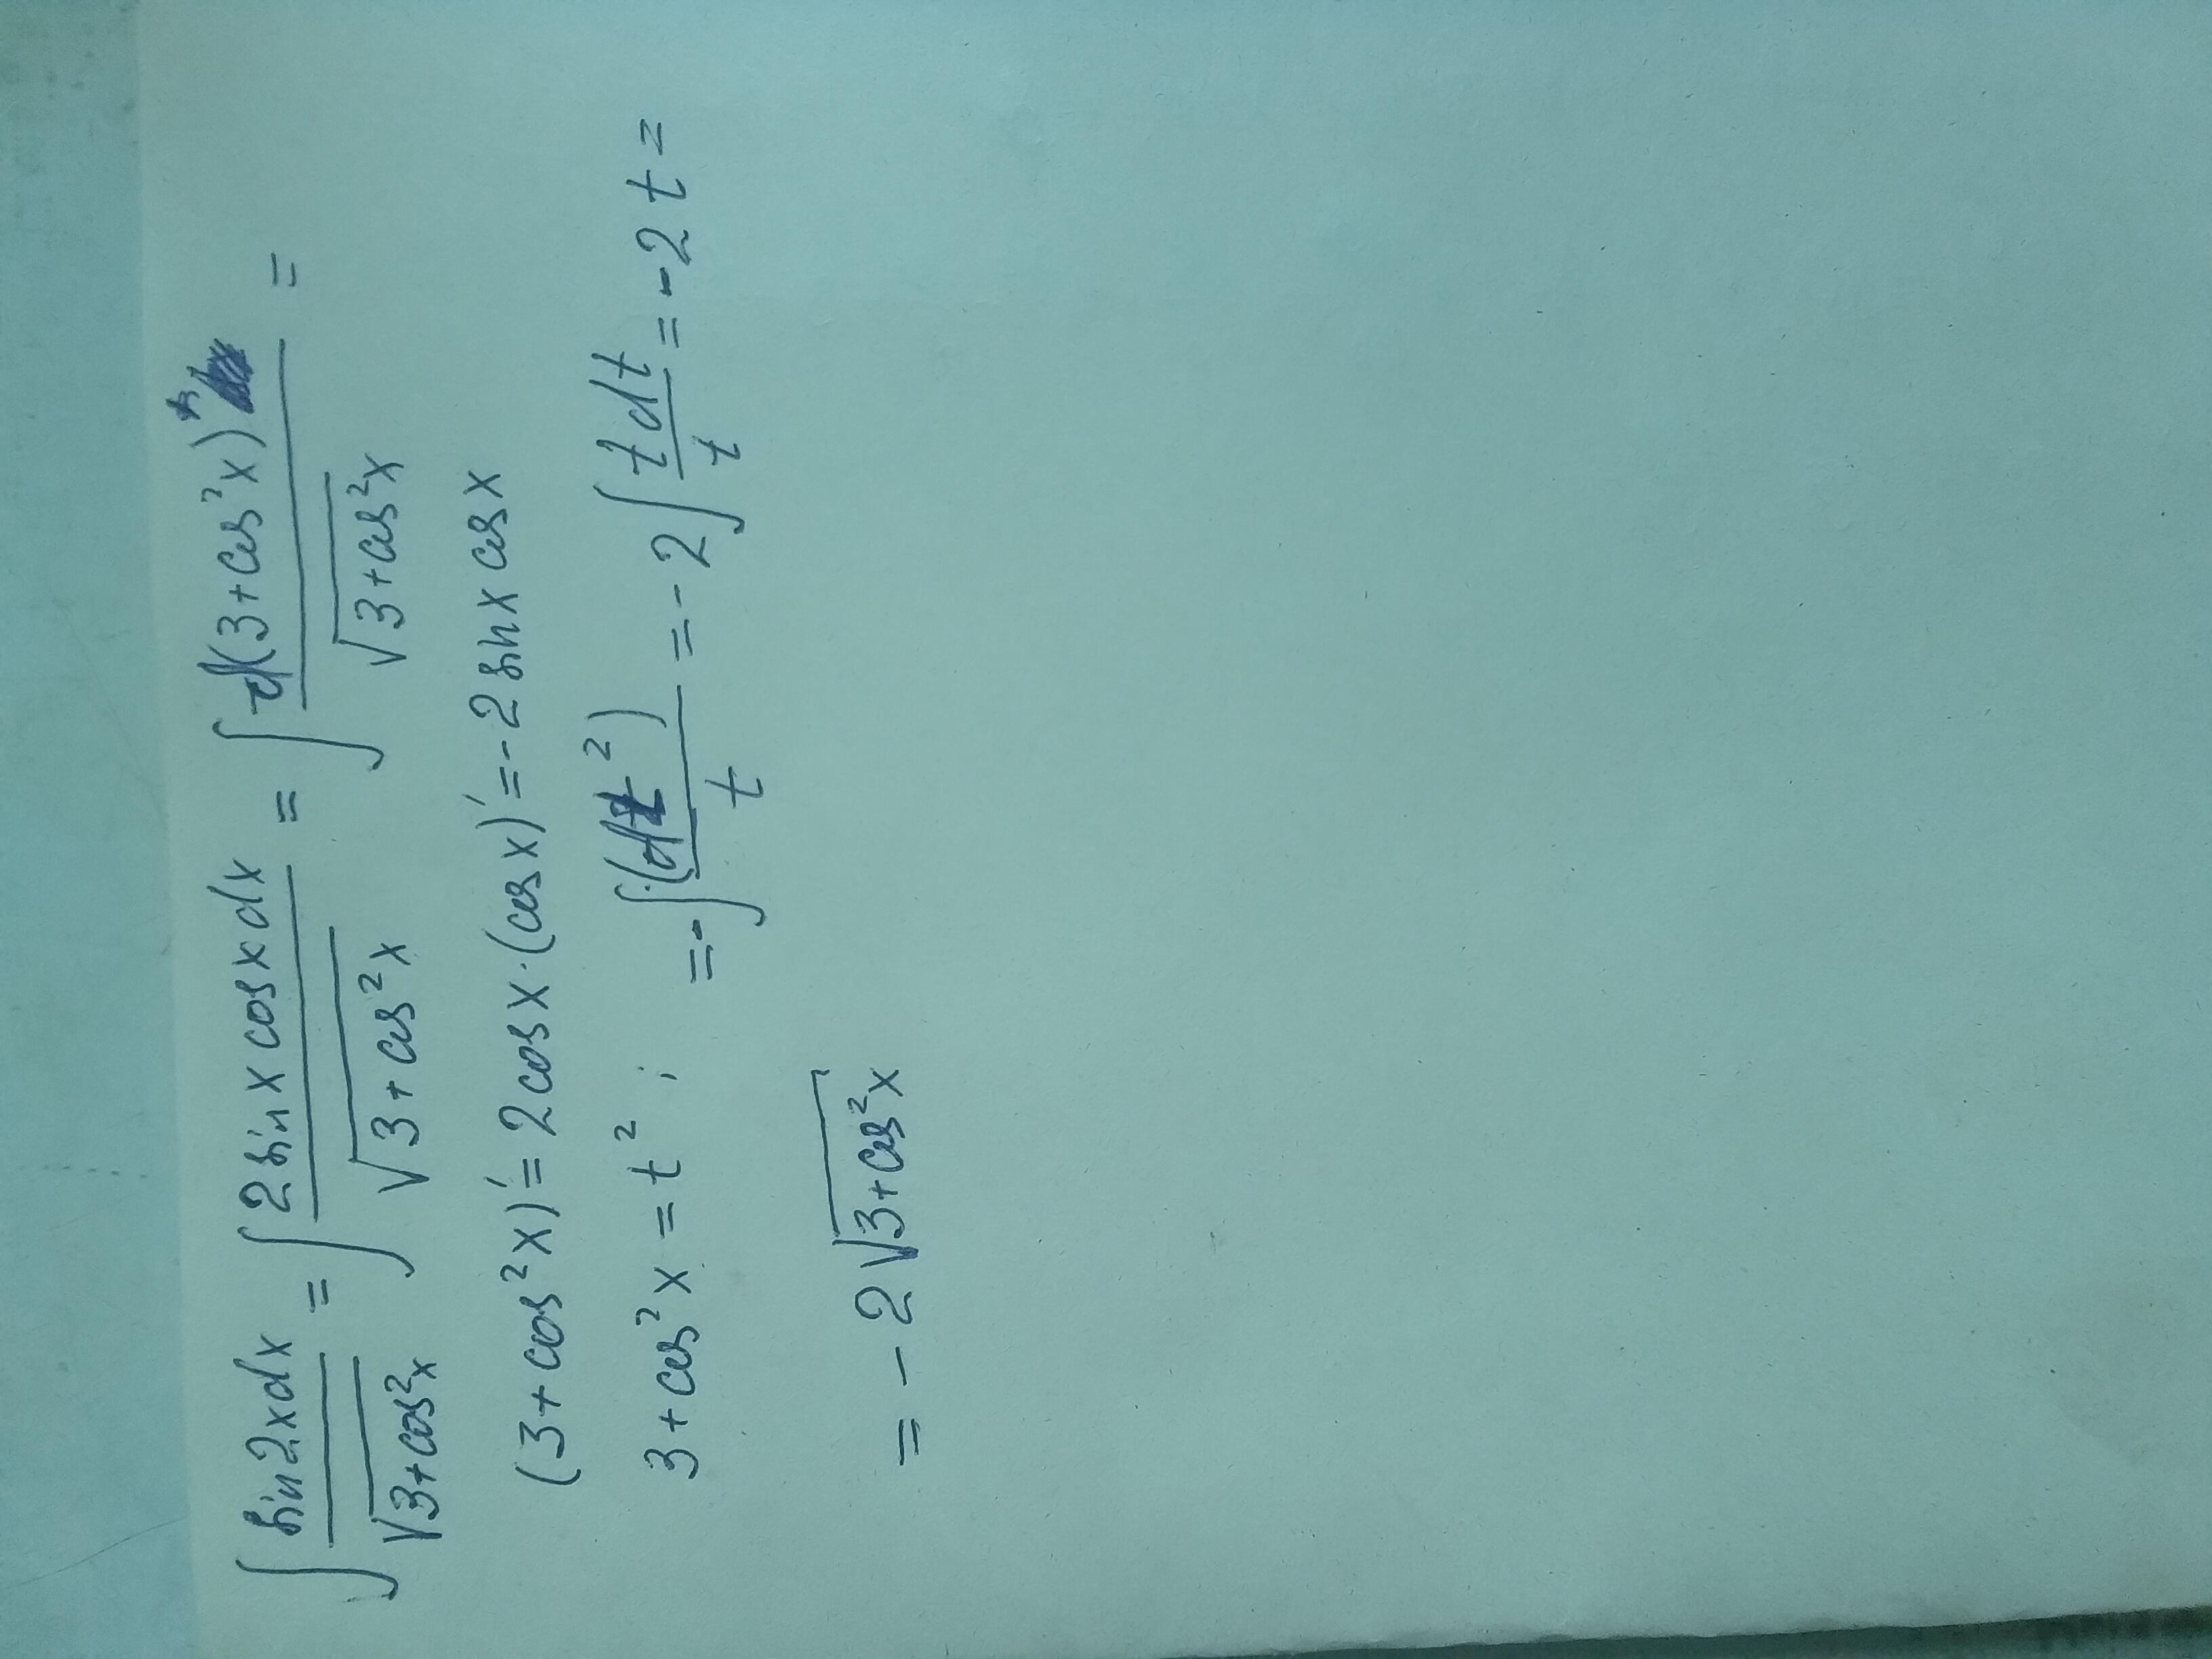 ∫ sin2xdx / √(3+cos²x) = ∫ 2sinx cosxdx / √(3+cos²x) = ∫ d(3+cos²x) / √(3+cos²x) =
(3+cos²x)′ = 2cosx·(cosx)′ = -2 sinx cosx
3+cos²x = t² ; = -∫ (dt²) / t = -2 ∫ tdt / t = -2t =
= -2√(3+cos²x)